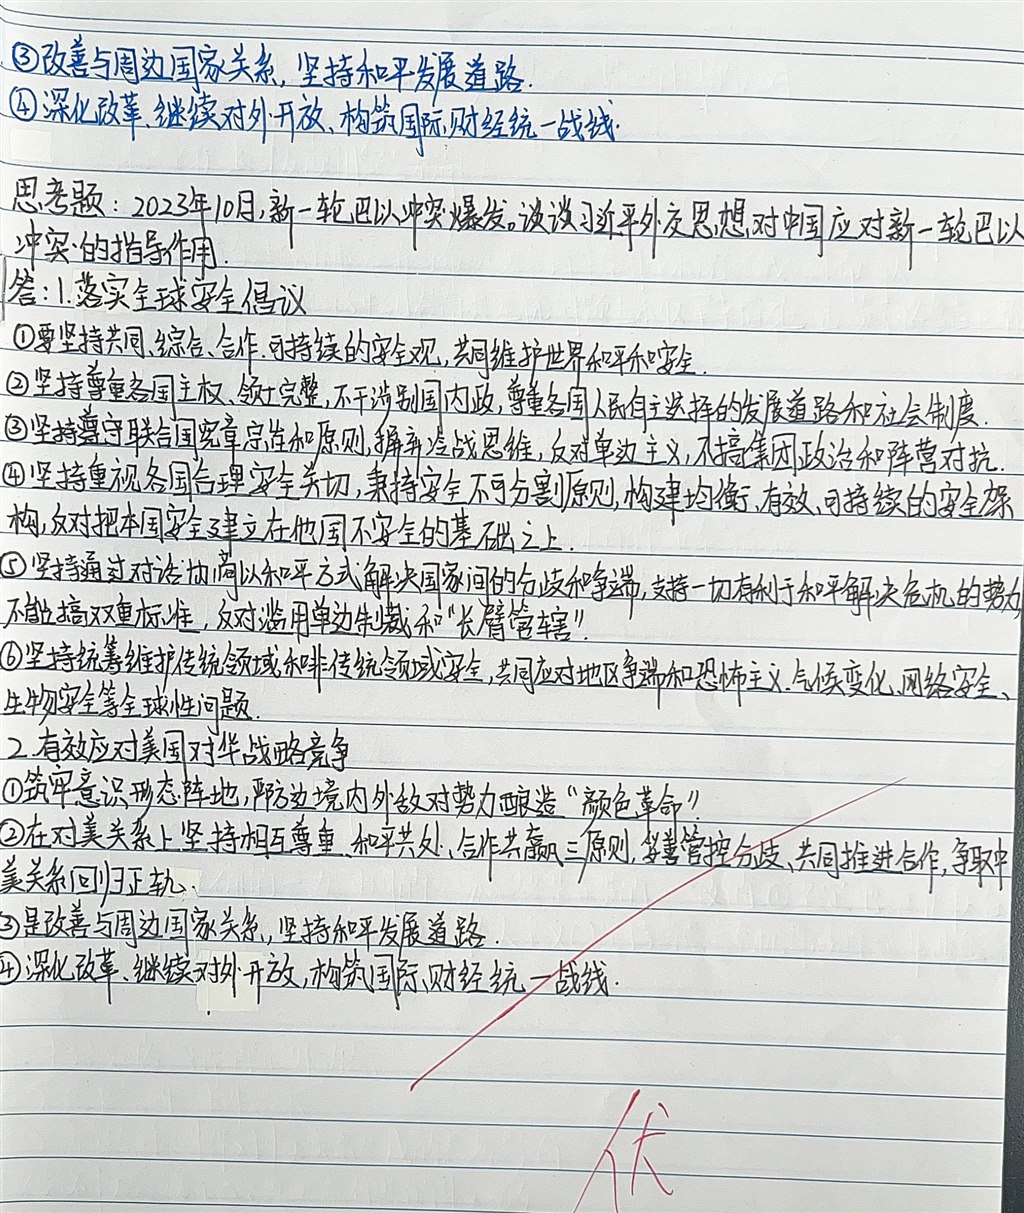 ③改善与周边国家关系,坚持和平发展道路.
④深化改革、继续对外开放、构筑国际财经统一战线.
思考题:2023年10月,新一轮巴以冲突爆发。谈谈习近平外交思想,对中国应对新一轮巴以
冲突的指导作用.
答:1.落实全球安全倡议
①要坚持共同、综合、合作、可持续的安全观,共同维护世界和平和安全.
②坚持尊重各国主权、领土完整,不干涉别国内政,尊重各国人民自主选择的发展道路和社会制度.
③坚持尊守联合国宪章宗旨和原则,摒弃冷战思维,反对单边主义,不搞集团政治和阵营对抗.
④坚持重视各国合理安全关切,秉持安全不可分割原则,构建均衡、有效、可持续的安全架
构,反对把本国安全建立在他国不安全的基础之上.
⑤坚持通过对话协商以和平方式解决国家间的分歧和争端,支持一切有利于和平解决危机的势力,
不能搞双重标准,反对滥用单边制裁和“长臂管辖”.
⑥坚持统筹维护传统领域和非传统领域安全,共同应对地区争端和恐怖主义、气候变化、网络安全、
生物安全等全球性问题.
2.有效应对美国对华战略竞争
①筑牢意识形态阵地,严防边境内外敌对势力酿造“颜色革命”.
②在对美关系上坚持相互尊重、和平共处、合作共赢三原则,妥善管控分歧、共同推进合作,争取中
美关系回归正轨.
③是改善与周边国家关系,坚持和平发展道路.
④深化改革、继续对外开放,构筑国际财经统一战线.